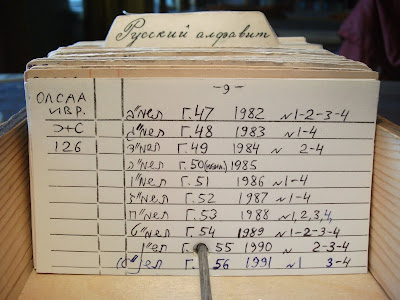 Русский алфавит
-9-
ОЛСАА
ИВР.
Э+С
126
תשמ"ב Г.47 1982 №1-2-3-4
תשמ"ג Г.48 1983 №1-4
תשמ"ד Г.49 1984 № 2-4
תשמ"ה Г.50 1985
תשמ"ו Г.51 1986 №1-4
תשמ"ז Г.52 1987 №1-4
תשמ"ח Г.53 1988 №1,2,3,4,
תשמ"ט Г.54 1989 №1-2-3-4
תש"ן Г. 55 1990 № 2-3-4
תשנ"א Г. 56 1991 №1 3-4